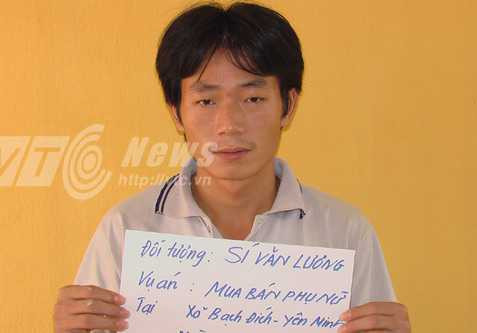 VTC News
http://vtc.vn
Đối tượng: SÍ VĂN LƯƠNG
Vụ án: MUA BÁN PHỤ NỮ
Tại Xã Bạch Đích - Yên Minh